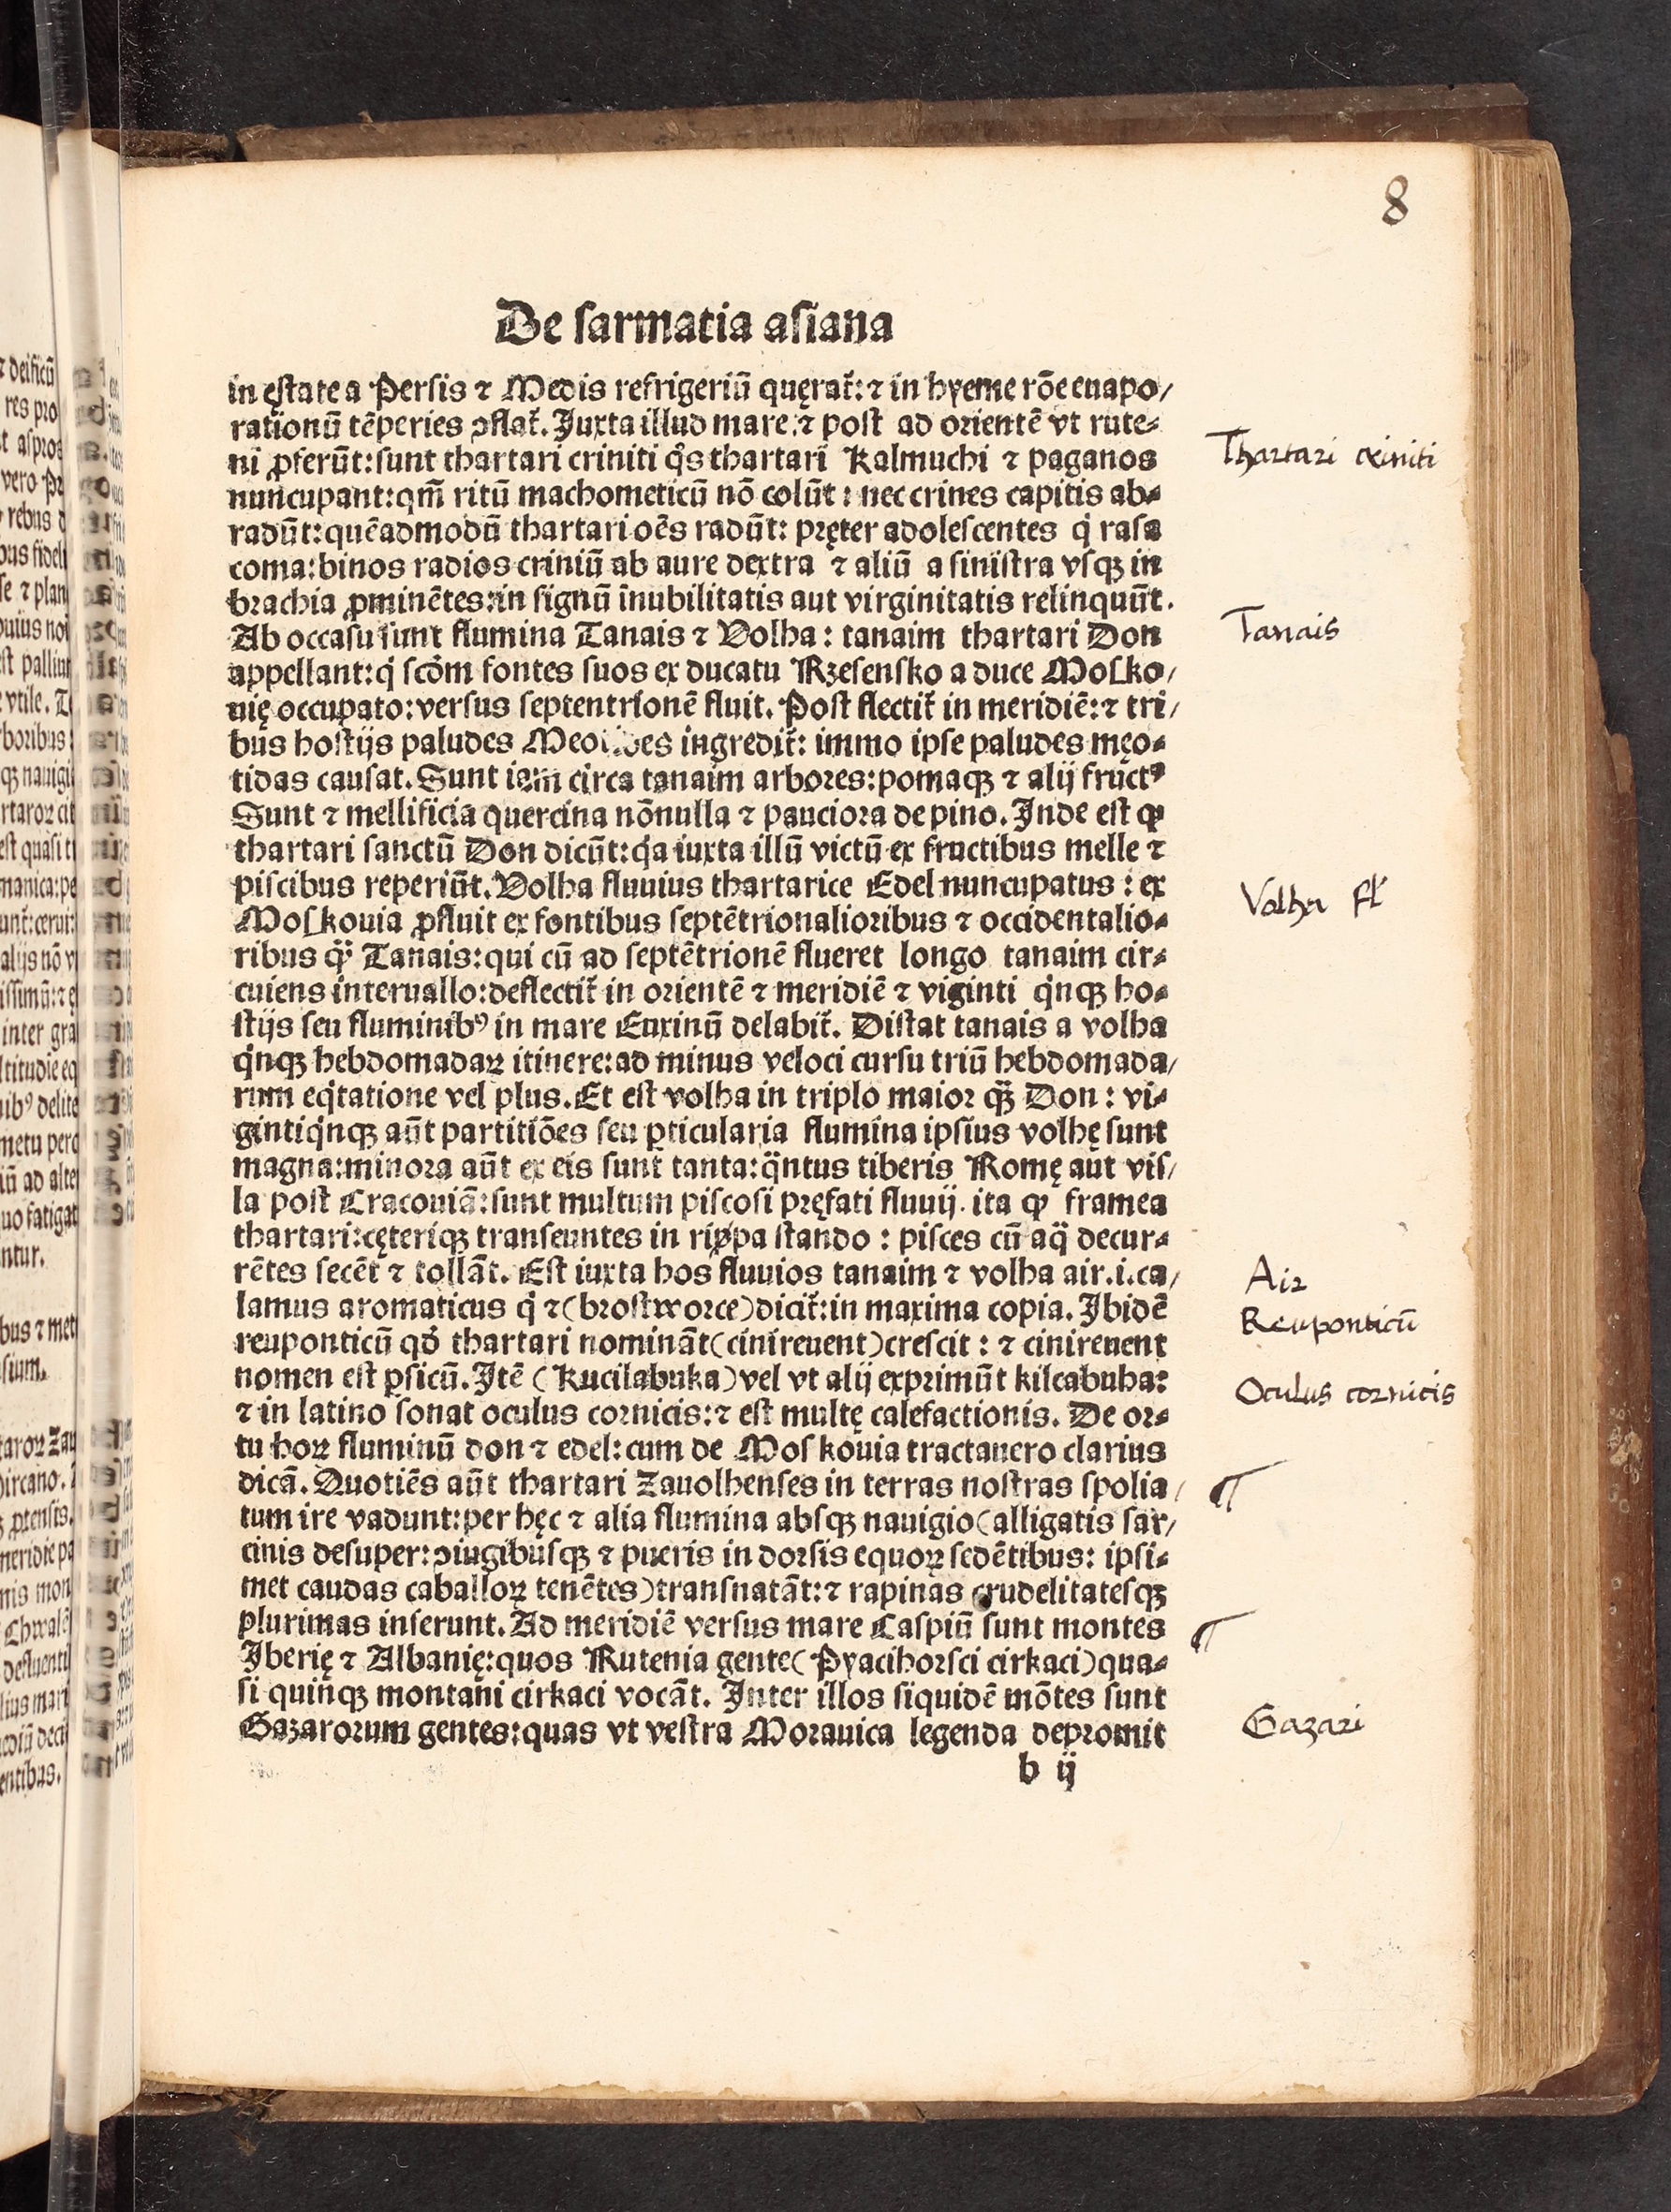 8
De sarmatia asiana
in ęstate a Persis ⁊ Medis refrigeriū quęrat᷑: ⁊ in hyeme rōe euapo/
rationū tēperies ↄflat᷑. Juxta illud mare: ⁊ post ad orientē vt rute⸗
ni ꝓferūt: sunt thartari criniti q̊s thartari Kalmuchi ⁊ paganos
nuncupant: qm̄ ritū machometicū nō colūt: nec crines capitis ab⸗
radūt: quēadmodū thartari oēs radūt: pręter adolescentes q̇ rasa
coma: binos radios criniū ab aure dextra ⁊ aliū a sinistra vsqꝫ in
brachia ꝓminētes: in signū inubilitatis aut virginitatis relinquūt.
Ab occasu sunt flumina Tanais ⁊ Volha: tanaim thartari Don
appellant: q̇ scḋm fontes suos ex ducatu Rzesensko a duce Mosko/
uię occupato: versus septentrionē fluit. Post flectit᷑ in meridiē: ⁊ tri/
bus hostijs paludes Meotides ingredit᷑: immo ipse paludes męo⸗
tidas causat. Sunt iem circa tanaim arbores: pomaqꝫ ⁊ alij fructꝰ
Sunt ⁊ mellificia quercina nōnulla ⁊ pauciora de pino. Inde est ꝙ
thartari sanctū Don dicūt: q̇a iuxta illū victū ex fructibus melle ⁊
piscibus reperiūt. Volha fluuius thartarice Edel nuncupatus: ex
Moskouia ꝓfluit ex fontibus septētrionalioribus ⁊ occidentalio⸗
ribus q̃ꝫ Tanais: qui cū ad septētrionē flueret longo tanaim cir⸗
cuiens interuallo: deflectit᷑ in orientē ⁊ meridiē ⁊ viginti q̇nqꝫ ho⸗
stijs seu fluminibꝰ in mare Euxinū delabit᷑. Distat tanais a volha
q̇nqꝫ hebdomadaꝝ itinere: ad minus veloci cursu triū hebdomada/
rum eq̇tatione vel plus. Et est volha in triplo maior q̃ꝫ Don: vi⸗
gintiq̇nqꝫ aūt partitiōes seu ꝑticularia flumina ipsius volhę sunt
magna: minora aūt ex eis sunt tanta: q̃ntus tiberis Romę aut vis/
la post Cracouiā: sunt multum piscosi pręfati fluuij. ita ꝙ framea
thartari: cęteriqꝫ transeuntes in rippa stando: pisces cū aq̃ decur⸗
rētes secēt ⁊ tollāt. Est iuxta hos fluuios tanaim ⁊ volha air .i. ca/
lamus aromaticus q̇ ⁊ (brostworce) dicit᷑: in maxima copia. Ibidē
reuponticū qḋ thartari nomināt (cinireuent) crescit: ⁊ cinireuent
nomen est ꝑsicū. Itē (Kucilabuka) vel vt alij exprimūt kilcabuha:
⁊ in latino sonat oculus cornicis: ⁊ est multę calefactionis. De or⸗
tu hoꝝ fluminū don ⁊ edel: cum de Moskouia tractauero clarius
dicā. Quotiēs aūt thartari Zauolhenses in terras nostras spolia/
tum ire vadunt: per hęc ⁊ alia flumina absqꝫ nauigio (alligatis sar/
cinis desuper: ↄiugibusqꝫ ⁊ pueris in dorsis equoꝝ sedētibus: ipsi⸗
met caudas caballoꝝ tenētes) transnatāt: ⁊ rapinas crudelitatesqꝫ
plurimas inferunt. Ad meridiē versus mare Caspiū sunt montes
Iberię ⁊ Albanię: quos Rutenia gente (Pyacihorsci cirkaci) qua⸗
si quinqꝫ montani cirkaci vocāt. Inter illos siquidē mōtes sunt
Gazarorum gentes: quas vt vestra Morauica legenda depromit
b ij
Thartari criniti
Tanais
Volha fl
Air
Reuponticū
Oculus cornicis
Gazari